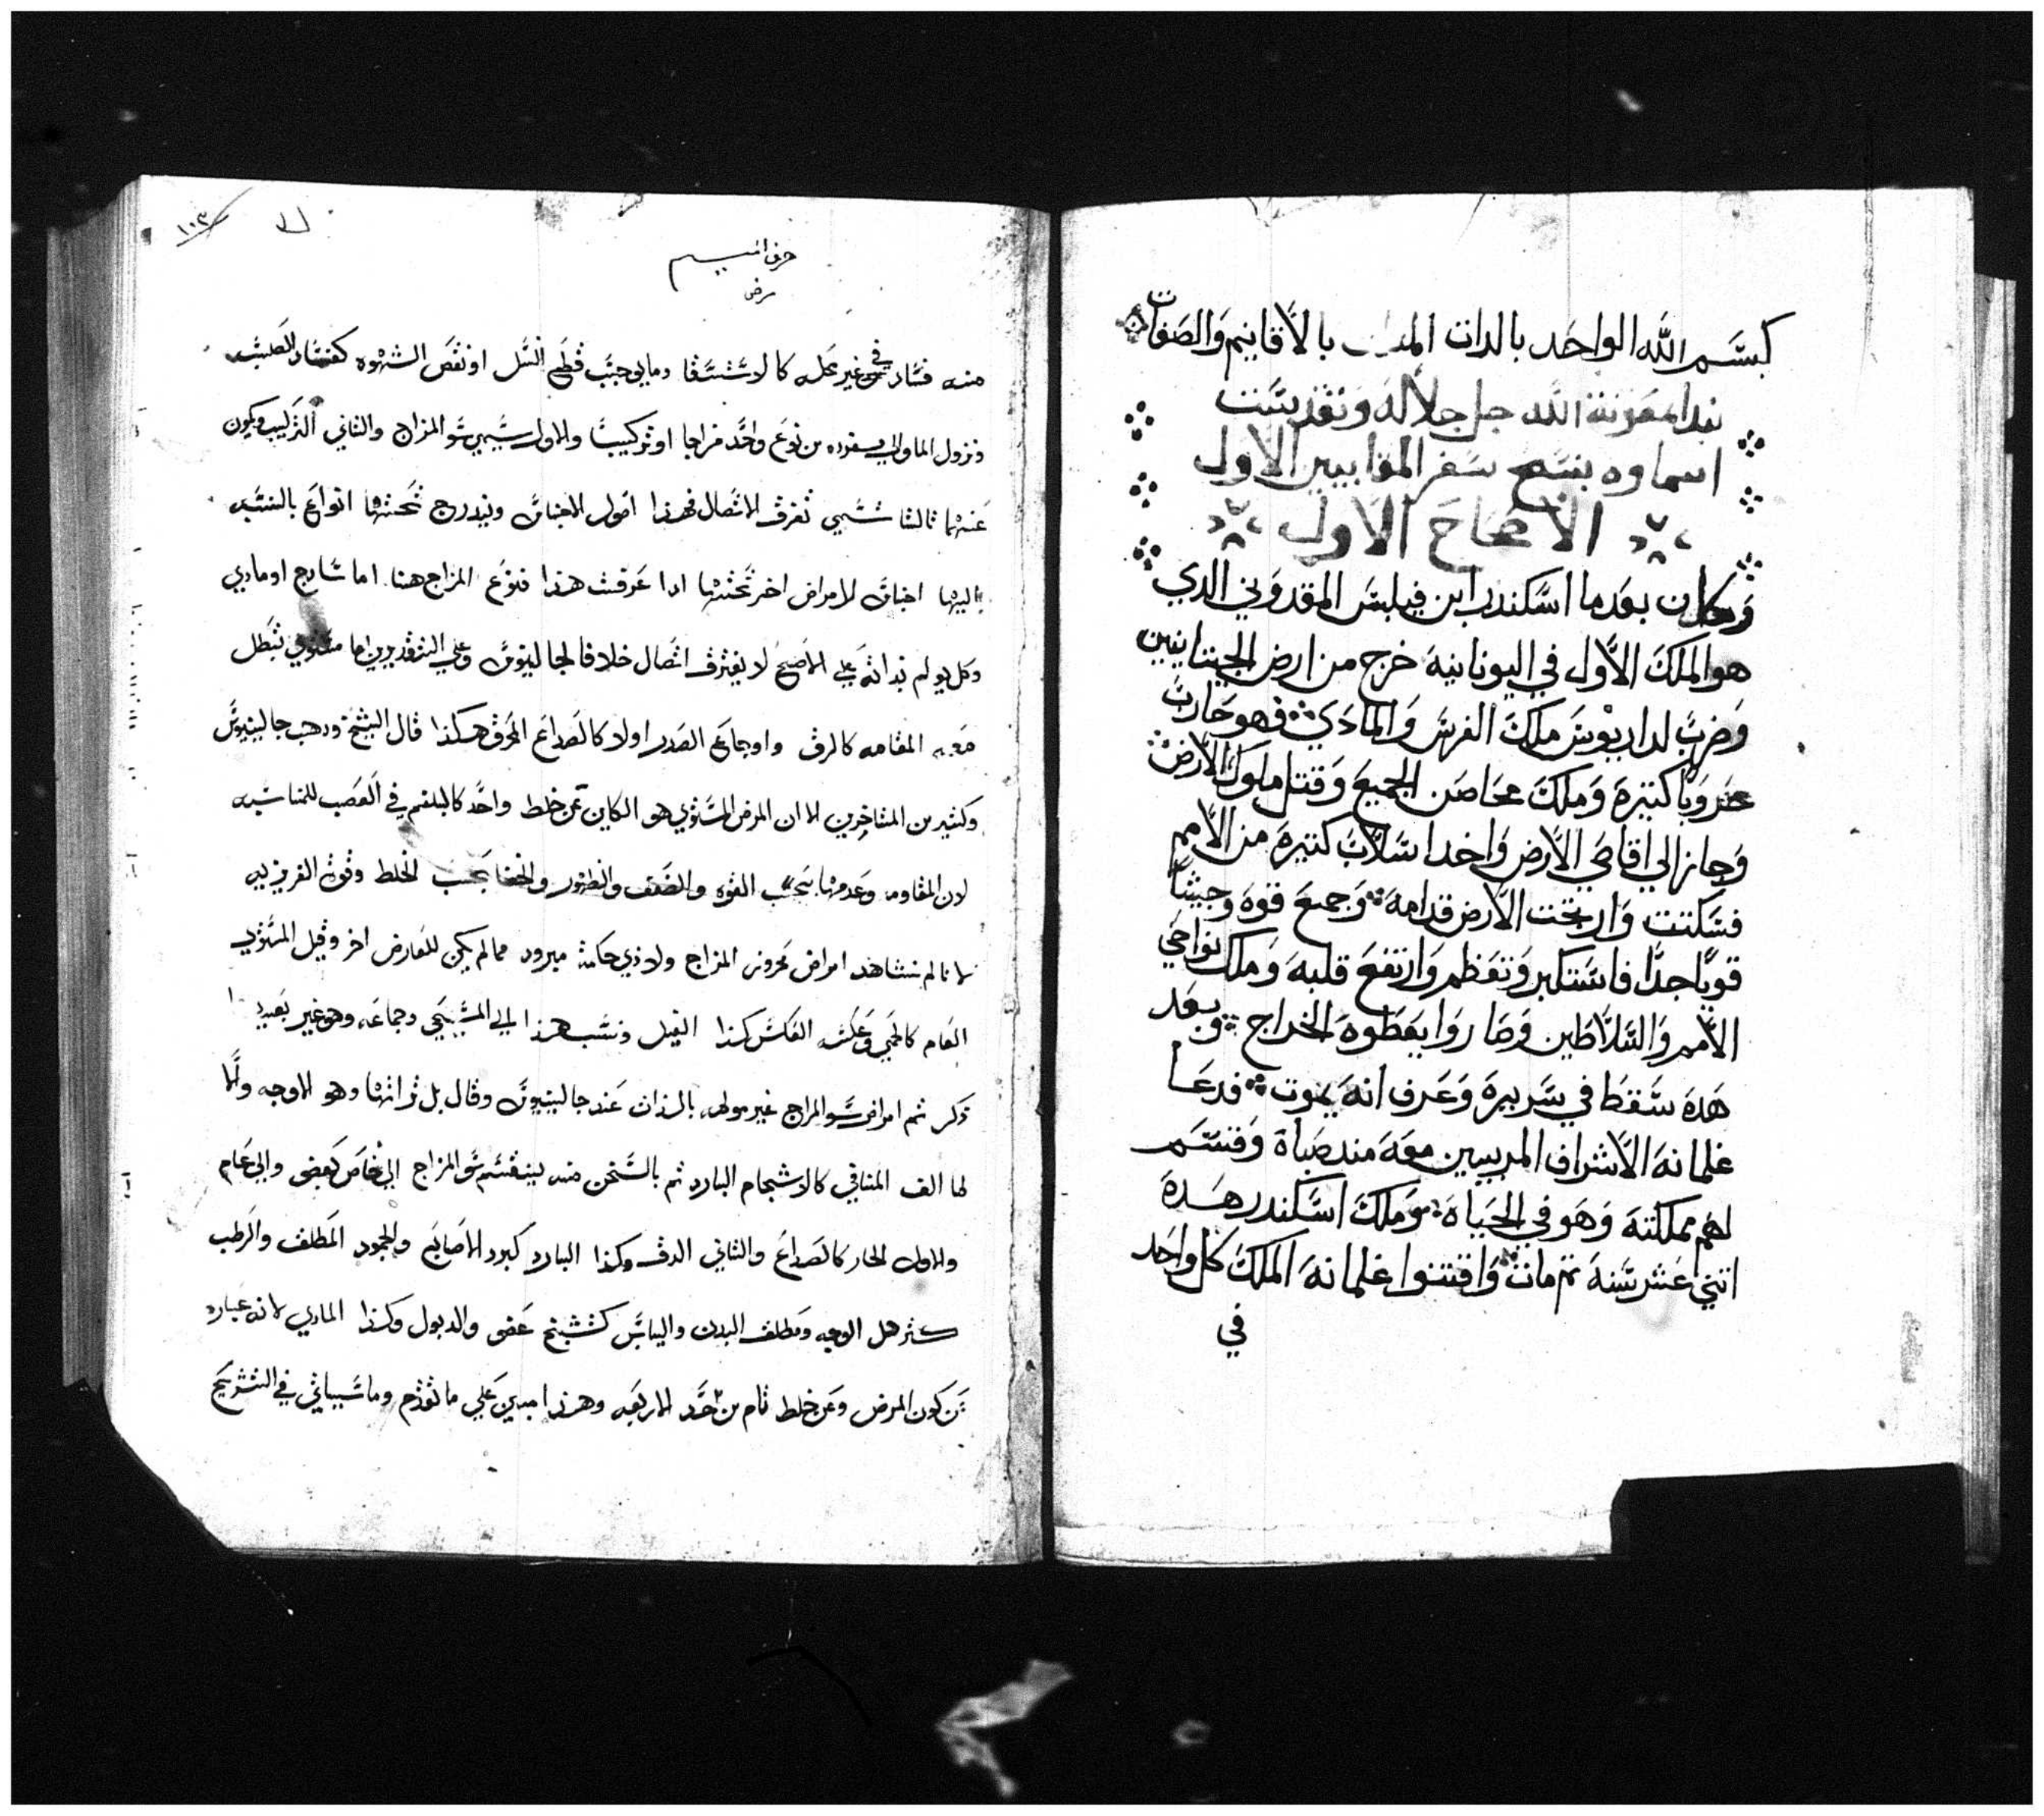 بسم الله الواحد بالدات بالاقانيم والصفات
نبدا بمعونة الله جل جلاله وتقديست
اسماوه بنسخ سفر المقابيين الاول
الاصحاح الاول
وكان بعدما اسكندر ابن فيلبس المقدوني الدي
هو الملك الاول في اليونانية خرج من ارض الجيتانيين
وضرب لداريوس ملك الفرس والمادي فهو حارب
حروبا كتيرة وملك محاصن الجميع وقتل ملوك الارض
وجاز الي اقاصي الارض واخد اسلاب كتيرة من الامم
فسكتت وارتجت الارض قدامه وجمع قوة وجيشا
قويا جدا فاستكبر وتعظم وارتفع قلبه وملك نواحي
الامم والسلاطين وصاروا يعطوه الخراج وبعد
هده سقط في سريره وعرف انه يموت فدعا
غلمانه الاشراف المربيين معه مند صباه وقسم
لهم مملكته وهو في الحياة وملك اسكندر هده
اتني عشر سنة تم مات واقتنوا غلمانه الملك كل واحد
في
١٠٣
حرف الميم
مرض
منه فساد في غير محله كالاستسقا وما يوجب قطع النسل او نقص الشهوه كفساد
ونزول الما من نوع واحد مزاجا او تركيبا والاول يسمي سو المزاج والثاني التركيب ويكون
عنهما ثالثا يسمي تفرق الاتصال فهذا اصول الاجناس ويندرج تحتها انواع بالنسبه
اليها اجناس لامراض اخر تحتها ادا عرفت هذا فنوع المزاج هنا اما سادج او مادي
وكل يولم بداته علي الاصح لا بتفرق اتصال خلافا لجالينوس وعلي التقديرين اما مستوي تبطل
معه المقاومه كالدق واوجاع الصدر اولا كالصداع المحرق هكذا قال الشيخ ودهب جالينوس
وكثير من المتاخرين لا ان المرض المستوي هو الكاين عن خلط واحد كالبلغم في العصب للمناسبه
لان المقاومه وعدمها بحسب القوه والضعف والظهور والخفا بحسب الخلط وقوة الغريزيه
لانا لم نشاهد امراض محرور المزاج ولا دي حكمة مبرود مما لم يكن للعارض اخر وقيل المستوي
العام كالحمي وعكسه العكس كذا القيل ونسب هذا الي المسيحي وجماعه وهو غير بعيد
دكر ثم امراض سو المزاج غير مولمه بالذات عند جالينوس وقال بل ذاتها وهو الاوجه والا
لما الف المنافي كالاستحمام البارد ثم بالسخن منه ينقسم سو المزاج الي خاص كعضو والي عام
والاول الحار كالصداع والثاني الدق وكذا البارد كبرد الاصابع والجمود المطلق والرطب
كترهل الوجه ومطلق البدن واليابس كتشنج عضو والدبول وكذا المادي لانه عباره
عن كون المرض وعن خلط تام من احد الاربعه وهذا مبني علي ما تقدم وما سياتي في التشريح